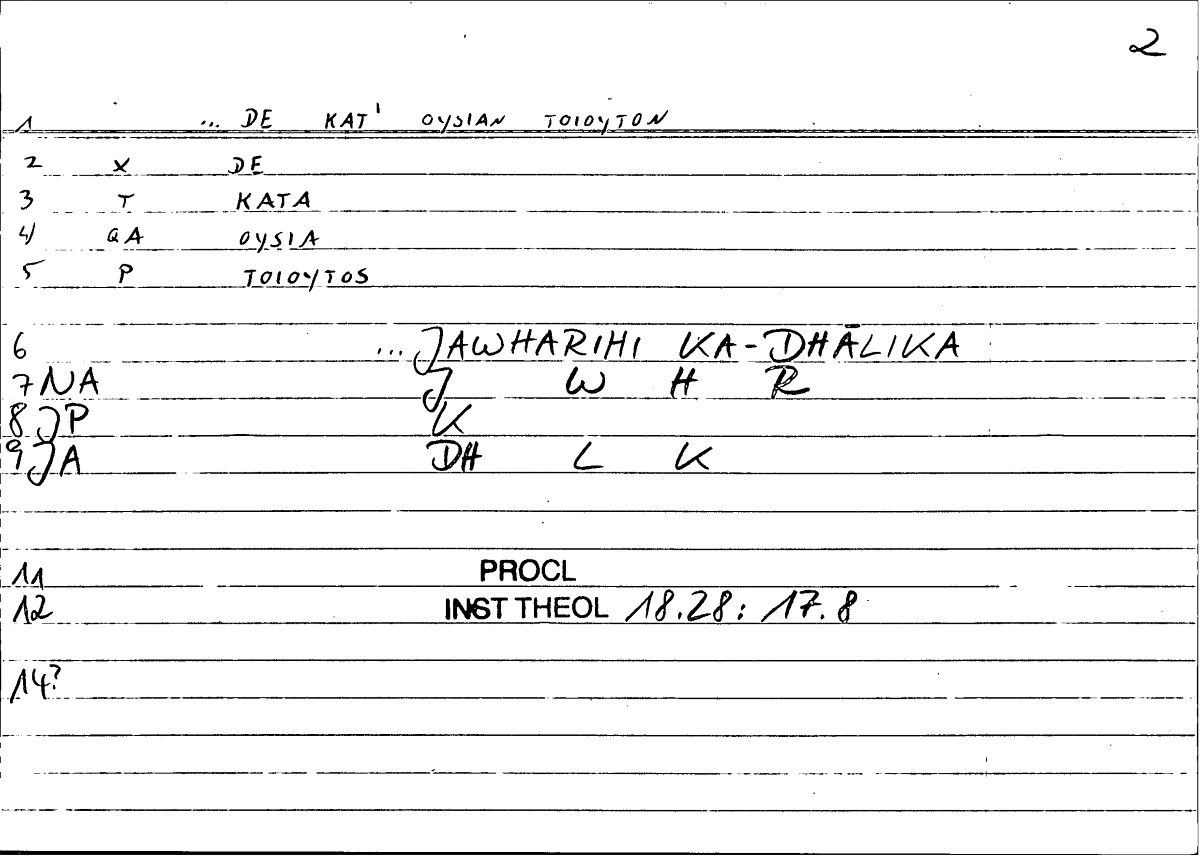 2
1 ... DE KAT' OYSIAN TOIOYTON
2 X DE
3 T KATA
4 QA OYSIA
5 P TOIOYTOS
6 ... JAWHARIHI KA-DHĀLIKA
7 NA J W H R
8 JP K
9 JA DH L K
11 PROCL
12 INST THEOL 18.28: 17.8
14?